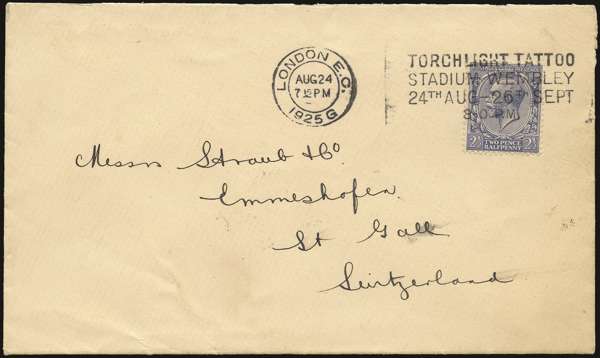 LONDON E.C.
AUG 24
7 15 PM
1925 G
TORCHLIGHT TATTOO
STADIUM WEMBLEY
24TH AUG - 26TH SEPT
8.0. P.M.
TWO PENCE
HALFPENNY
2½ 2½
Messrs Straub & Co
Emmeshofen
St Gall
Switzerland